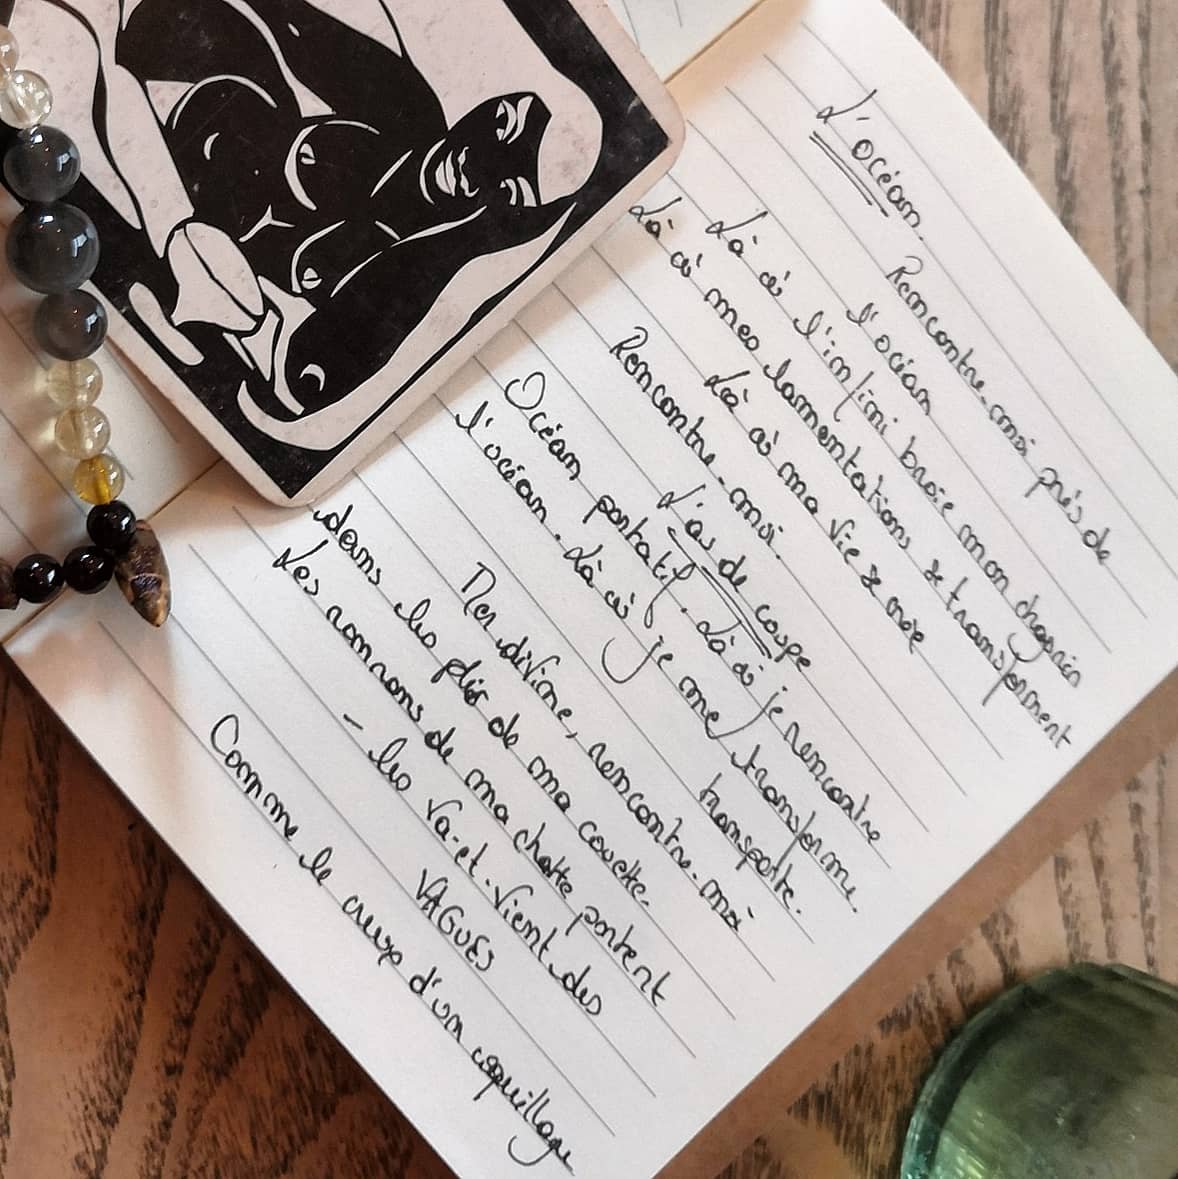 L'océan.
Rencontre-moi près de
l'océan
Là où l'infini broie mon chagrin
Là où mes lamentations se transforment
Là où ma vie se noie
Rencontre-moi.
L'as de coupe
Océan portatif. Là où je rencontre
l'océan. Là où je me transforme.
transporte.
Mer divine, rencontre-moi
dans les plis de ma couette.
Les ronrons de ma chatte portent
- les va-et-vient des
VAGUES
Comme le creux d'un coquillage